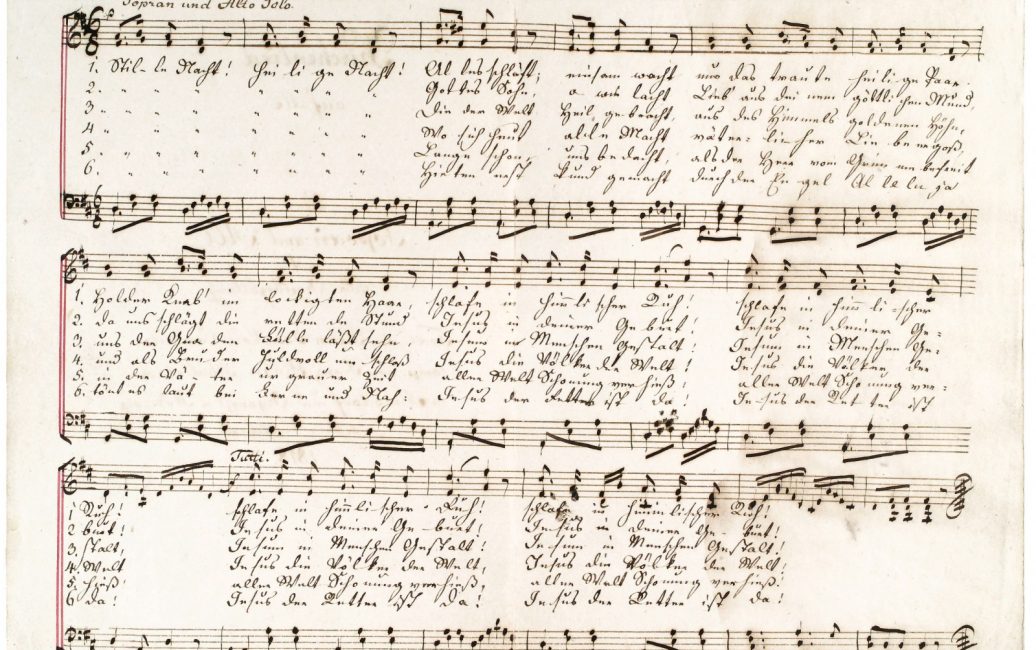 Sopran und Alto Solo.
1. Stil-le Nacht! hei-li-ge Nacht! Al les schläft; einsam wacht nur das traute heilige Paar.
2. " " " " " " Gottes Sohn, o wie lacht Lieb' aus dei nem göttlichen Mund,
3 " " " " " " Die der Welt Heil gebracht, aus des Himmels goldenen Höhn,
4 " " " " " " Wo sich heut alle Macht väter-licher Liebe ergoß,
5. " " " " " " Lange schon uns bedacht, als der Herr vom Grimm befreit
6. " " " " " " Hirten erst kund gemacht durch der En gel Al le lu ja
1. Holder Knab' im lockigten Haar, schlafe in himmlischer Ruh! schlafe in himmli-scher
2. da uns schlägt die retten de Stund Jesus in deiner Geburt! Jesus in deiner Ge-
3. uns der Gna den Fülle läßt sehn, Jesum in Menschen Gestalt! Jesum in Menschen Ge-
4. und als Bruder Huldvoll um-schloß Jesus die Völker der Welt! Jesus die Völker der
5. in der Vä-ter urgrauer Zeit aller Welt Schonung verhieß! aller Welt Schonung ver-
6. tönt es laut bei Ferne und Nah: Jesus der Retter ist da! Je-sus der Ret ter ist
Tutti.
1 Ruh! schlafe in himmlischer Ruh! schlafe in himmlischer Ruh!
2 burt! Jesus in deiner Ge-burt! Jesus in deiner Ge-burt!
3. stalt, Jesum in Menschen Gestalt! Jesum in Menschen Gestalt!
4. Welt Jesus die Völker der Welt, Jesus die Völker der Welt!
5. hieß! aller Welt Schonung verhieß! aller Welt Schonung verhieß!
6 da! Jesus der Retter ist da! Jesus der Retter ist da!